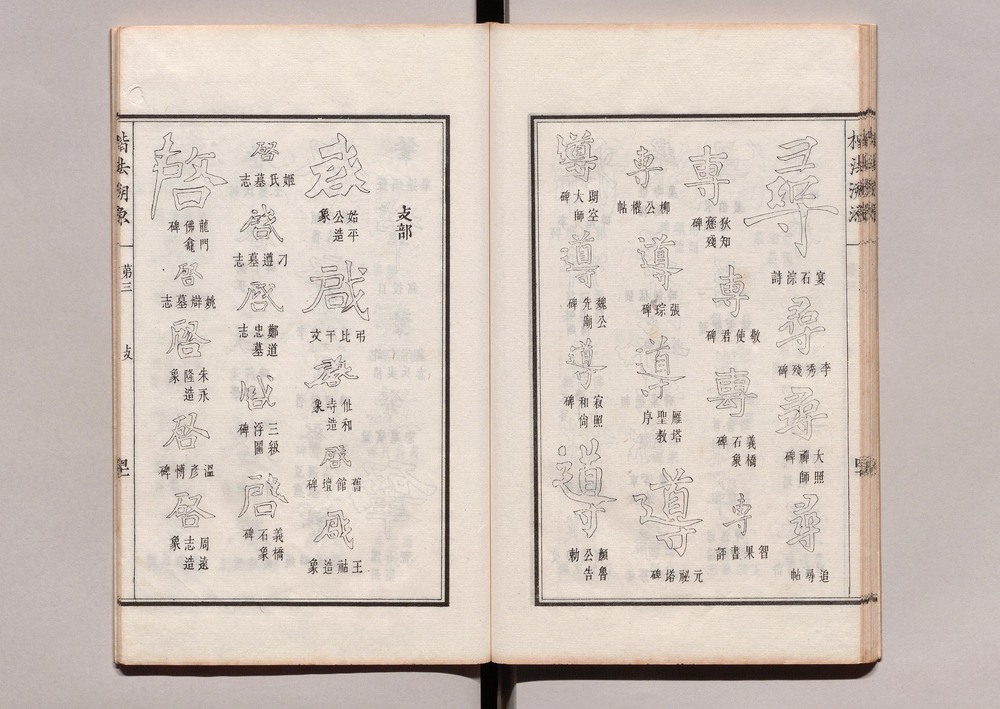 尋
宴石淙詩
尋
李秀殘碑
尋
大照禪師碑
尋
追尋帖
專
狄知愻殘碑
專
敬使君碑
專
義橋石象碑
專
智果書評
專
柳公權帖
導
張琮碑
導
雁塔聖教序
導
元祕塔碑
導
室大師碑
導
魏公先廟碑
導
寂照和尙碑
導
顏魯公告勅
攴部
啟
始平公造象
啟
弔比干文
啟
和寺造象
啟
舊館壇碑
啟
王造象
啓
姬氏墓志
啓
刁遵墓志
啟
鄭道忠墓志
啟
三級浮圖碑
啓
義橋石象碑
啓
龍門佛龕碑
啓
姚辯墓志
啓
朱永隆造象
啓
溫彥博碑
啓
周遠志造象
楷法溯源
第三
攴